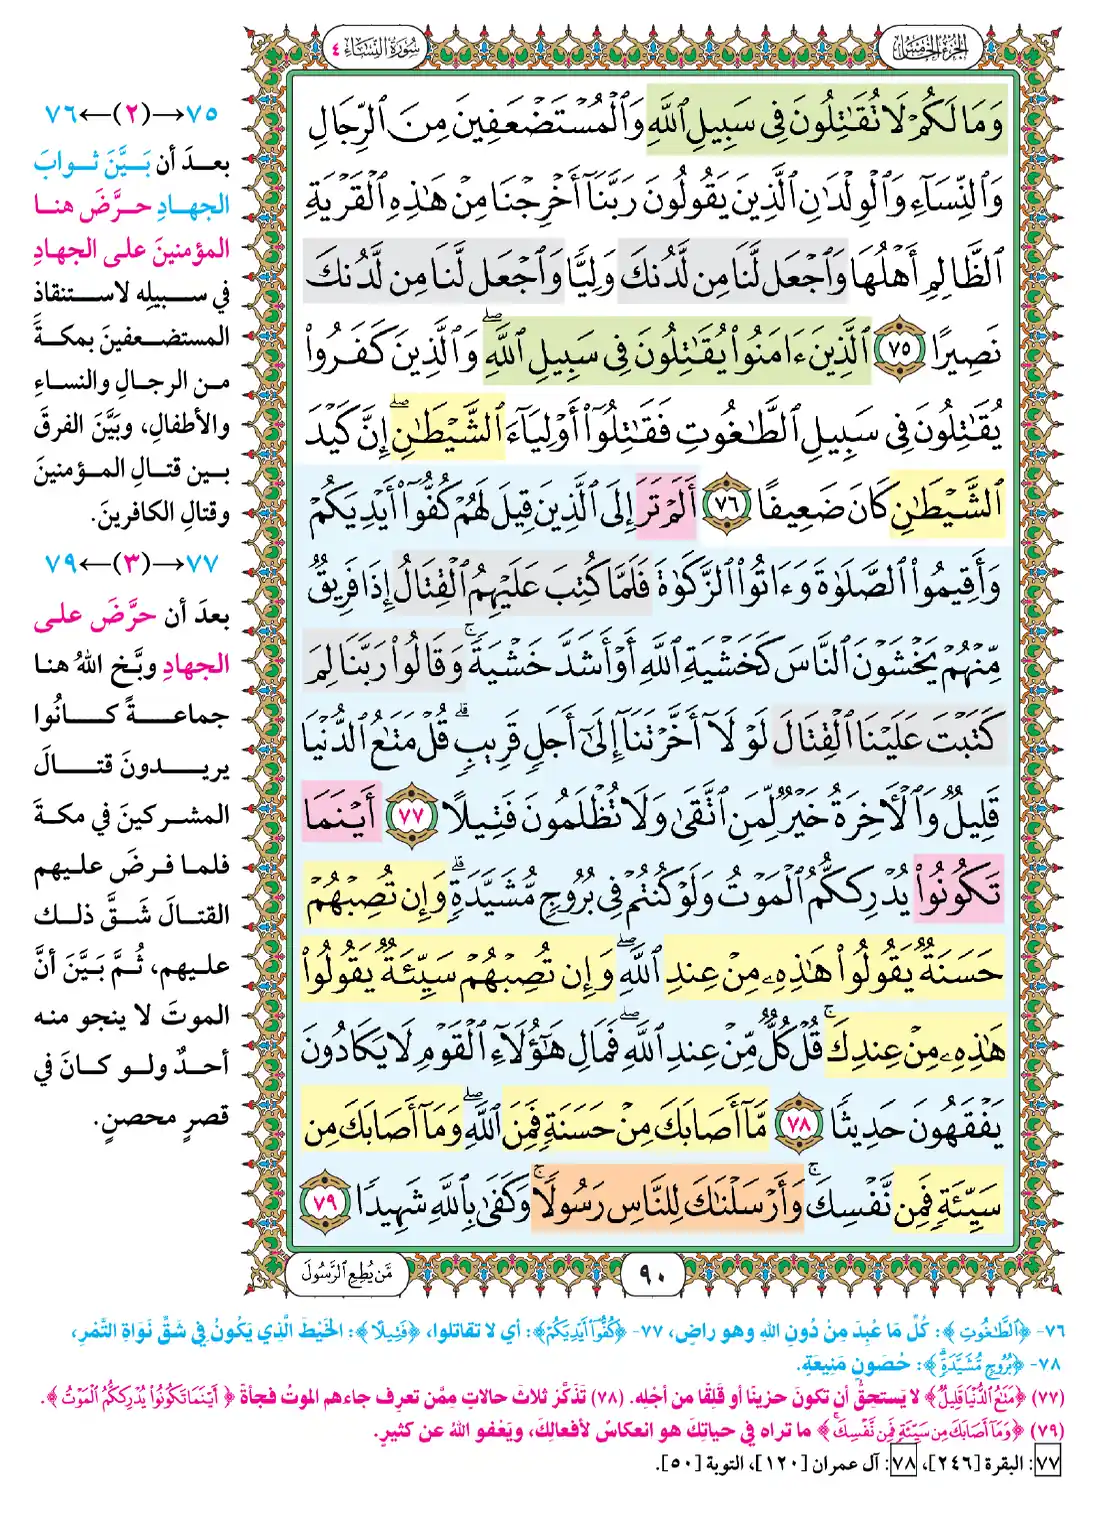 الجزء الخامس
سورة النساء ٤
وَمَا لَكُمْ لَا تُقَٰتِلُونَ فِى سَبِيلِ ٱللَّهِ وَٱلْمُسْتَضْعَفِينَ مِنَ ٱلرِّجَالِ
وَٱلنِّسَآءِ وَٱلْوِلْدَٰنِ ٱلَّذِينَ يَقُولُونَ رَبَّنَآ أَخْرِجْنَا مِنْ هَٰذِهِ ٱلْقَرْيَةِ
ٱلظَّالِمِ أَهْلُهَا وَٱجْعَل لَّنَا مِن لَّدُنكَ وَلِيًّا وَٱجْعَل لَّنَا مِن لَّدُنكَ
نَصِيرًا ٧٥ ٱلَّذِينَ ءَامَنُوا۟ يُقَٰتِلُونَ فِى سَبِيلِ ٱللَّهِ ۖ وَٱلَّذِينَ كَفَرُوا۟
يُقَٰتِلُونَ فِى سَبِيلِ ٱلطَّٰغُوتِ فَقَٰتِلُوٓا۟ أَوْلِيَآءَ ٱلشَّيْطَٰنِ ۖ إِنَّ كَيْدَ
ٱلشَّيْطَٰنِ كَانَ ضَعِيفًا ٧٦ أَلَمْ تَرَ إِلَى ٱلَّذِينَ قِيلَ لَهُمْ كُفُّوٓا۟ أَيْدِيَكُمْ
وَأَقِيمُوا۟ ٱلصَّلَوٰةَ وَءَاتُوا۟ ٱلزَّكَوٰةَ فَلَمَّا كُتِبَ عَلَيْهِمُ ٱلْقِتَالُ إِذَا فَرِيقٌ
مِّنْهُمْ يَخْشَوْنَ ٱلنَّاسَ كَخَشْيَةِ ٱللَّهِ أَوْ أَشَدَّ خَشْيَةً ۚ وَقَالُوا۟ رَبَّنَا لِمَ
كَتَبْتَ عَلَيْنَا ٱلْقِتَالَ لَوْلَآ أَخَّرْتَنَآ إِلَىٰٓ أَجَلٍ قَرِيبٍ ۗ قُلْ مَتَٰعُ ٱلدُّنْيَا
قَلِيلٌ وَٱلْءَاخِرَةُ خَيْرٌ لِّمَنِ ٱتَّقَىٰ وَلَا تُظْلَمُونَ فَتِيلًا ٧٧ أَيْنَمَا
تَكُونُوا۟ يُدْرِككُّمُ ٱلْمَوْتُ وَلَوْ كُنتُمْ فِى بُرُوجٍ مُّشَيَّدَةٍ ۗ وَإِن تُصِبْهُمْ
حَسَنَةٌ يَقُولُوا۟ هَٰذِهِۦ مِنْ عِندِ ٱللَّهِ ۖ وَإِن تُصِبْهُمْ سَيِّئَةٌ يَقُولُوا۟
هَٰذِهِۦ مِنْ عِندِكَ ۚ قُلْ كُلٌّ مِّنْ عِندِ ٱللَّهِ ۖ فَمَالِ هَٰٓؤُلَآءِ ٱلْقَوْمِ لَا يَكَادُونَ
يَفْقَهُونَ حَدِيثًا ٧٨ مَّآ أَصَابَكَ مِنْ حَسَنَةٍ فَمِنَ ٱللَّهِ ۖ وَمَآ أَصَابَكَ مِن
سَيِّئَةٍ فَمِن نَّفْسِكَ ۚ وَأَرْسَلْنَٰكَ لِلنَّاسِ رَسُولًا ۚ وَكَفَىٰ بِٱللَّهِ شَهِيدًا ٧٩
٩٠
مَّن يُطِعِ ٱلرَّسُولَ
٧٥→(٢)←٧٦
بعدَ أن بَيَّنَ ثوابَ
الجهادِ حرَّضَ هنا
المؤمنينَ على الجهادِ
في سبيلِه لاستنقاذ
المستضعفينَ بمكةَ
من الرجالِ والنساءِ
والأطفالِ، وبَيَّنَ الفرقَ
بين قتالِ المؤمنينَ
وقتالِ الكافرينَ.
٧٧→(٣)←٧٩
بعدَ أن حرَّضَ على
الجهادِ وبَّخ اللهُ هنا
جماعةً كانُوا
يريدونَ قتالَ
المشركينَ في مكةَ
فلما فرضَ عليهم
القتالَ شَقَّ ذلك
عليهم، ثُمَّ بَيَّنَ أنَّ
الموتَ لا ينجو منه
أحدٌ ولو كانَ في
قصرٍ محصنٍ.
٧٦- ﴿ٱلطَّٰغُوتِ﴾: كُلِّ مَا عُبِدَ مِنْ دُونِ اللهِ وهو راضٍ، ٧٧- ﴿كُفُّوٓا۟ أَيْدِيَكُمْ﴾: أي لا تقاتلوا، ﴿فَتِيلًا﴾: الخَيْطَ الَّذِي يَكُونُ فِي شَقِّ نَوَاةِ التَّمْرِ،
٧٨- ﴿بُرُوجٍ مُّشَيَّدَةٍ﴾: حُصُونٍ مَنِيعَةٍ.
(٧٧) ﴿مَتَٰعُ ٱلدُّنْيَا قَلِيلٌ﴾ لا يَستحِقُّ أن تكونَ حزينًا أو قَلِقًا من أجْلِه. (٧٨) تَذَكَّرْ ثلاثَ حالاتٍ مِمَّن تعرِف جاءهم الموتُ فجأةً ﴿أَيْنَمَا تَكُونُوا۟ يُدْرِككُّمُ ٱلْمَوْتُ﴾.
(٧٩) ﴿وَمَآ أَصَابَكَ مِن سَيِّئَةٍ فَمِن نَّفْسِكَ﴾ ما تراه في حياتِكَ هو انعكاسٌ لأفعالِكَ، ويَعْفو اللهُ عن كثيرٍ.
٧٧: البقرة [٢٤٦]، ٧٨: آل عمران [١٢٠]، التوبة [٥٠].